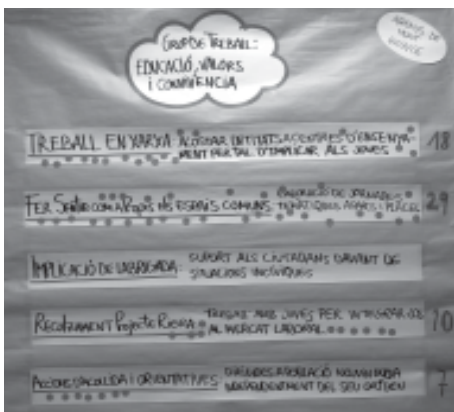 GRUP DE TREBALL:
EDUCACIÓ, VALORS
I CONVIVÈNCIA
TREBALL EN XARXA: ACOSTAR ENTITATS A CENTRES D'ENSENYA-
MENT PER TAL D'IMPLICAR ALS JOVES
18
FER SENTIR COM A PROPIS ELS ESPAIS COMUNS:
DE JORNADES
TEMÀTIQUES
29
IMPLICACIÓ DE LA BRIGADA: SUPORT ALS CIUTADANS DAVANT DE
SITUACIONS INCÍVIQUES
RECOLZAMENT Projecte RIERA: TREBALL AMB JOVES PER INTEGRAR-LOS
AL MERCAT LABORAL
10
ACCIONS D'ACOLLIDA I ORIENTATIVES:
INDEPENDENTMENT DEL SEU ORIGEN
7